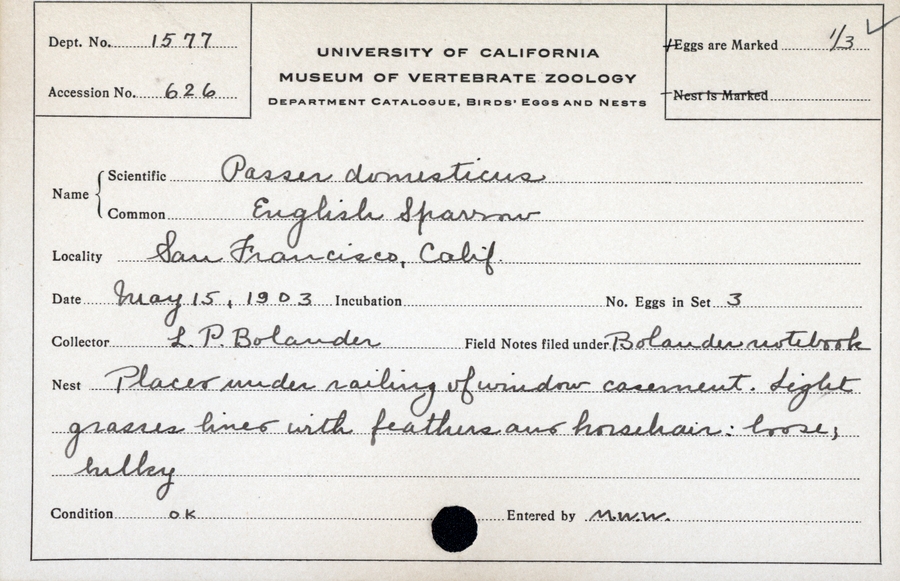 Dept. No. 1577
Accession No. 626
UNIVERSITY OF CALIFORNIA
MUSEUM OF VERTEBRATE ZOOLOGY
DEPARTMENT CATALOGUE, BIRDS' EGGS AND NESTS
Eggs are Marked 1/3 ✓
Nest is Marked
Name
Scientific Passer domesticus
Common English Sparrow
Locality San Francisco, Calif.
Date May 15, 1903 Incubation No. Eggs in Set 3
Collector L. P. Bolander Field Notes filed under Bolander notebook
Nest Placed under railing of window casement. Light
grasses lined with feathers and horsehair: loose,
bulky
Condition OK Entered by M.W.W.